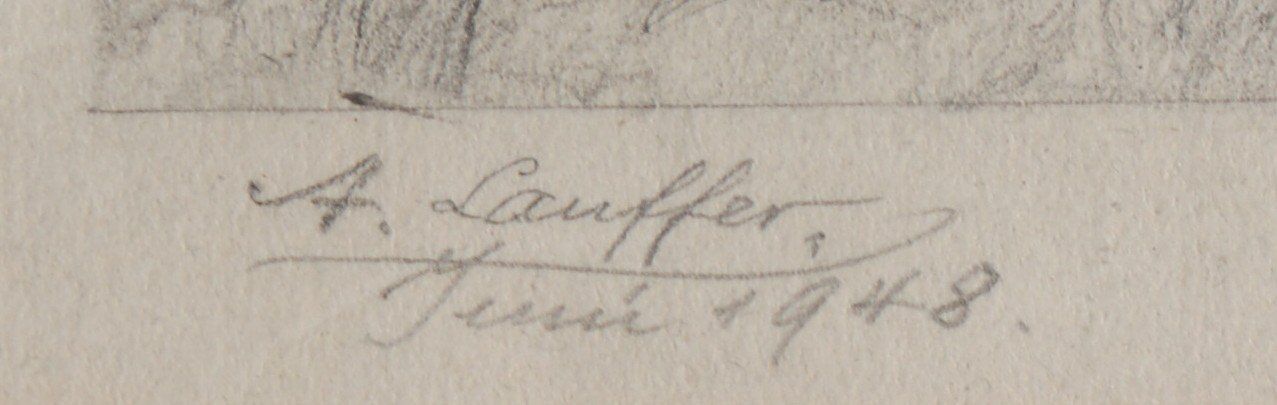 A. Lauffer.
Juni 1948.